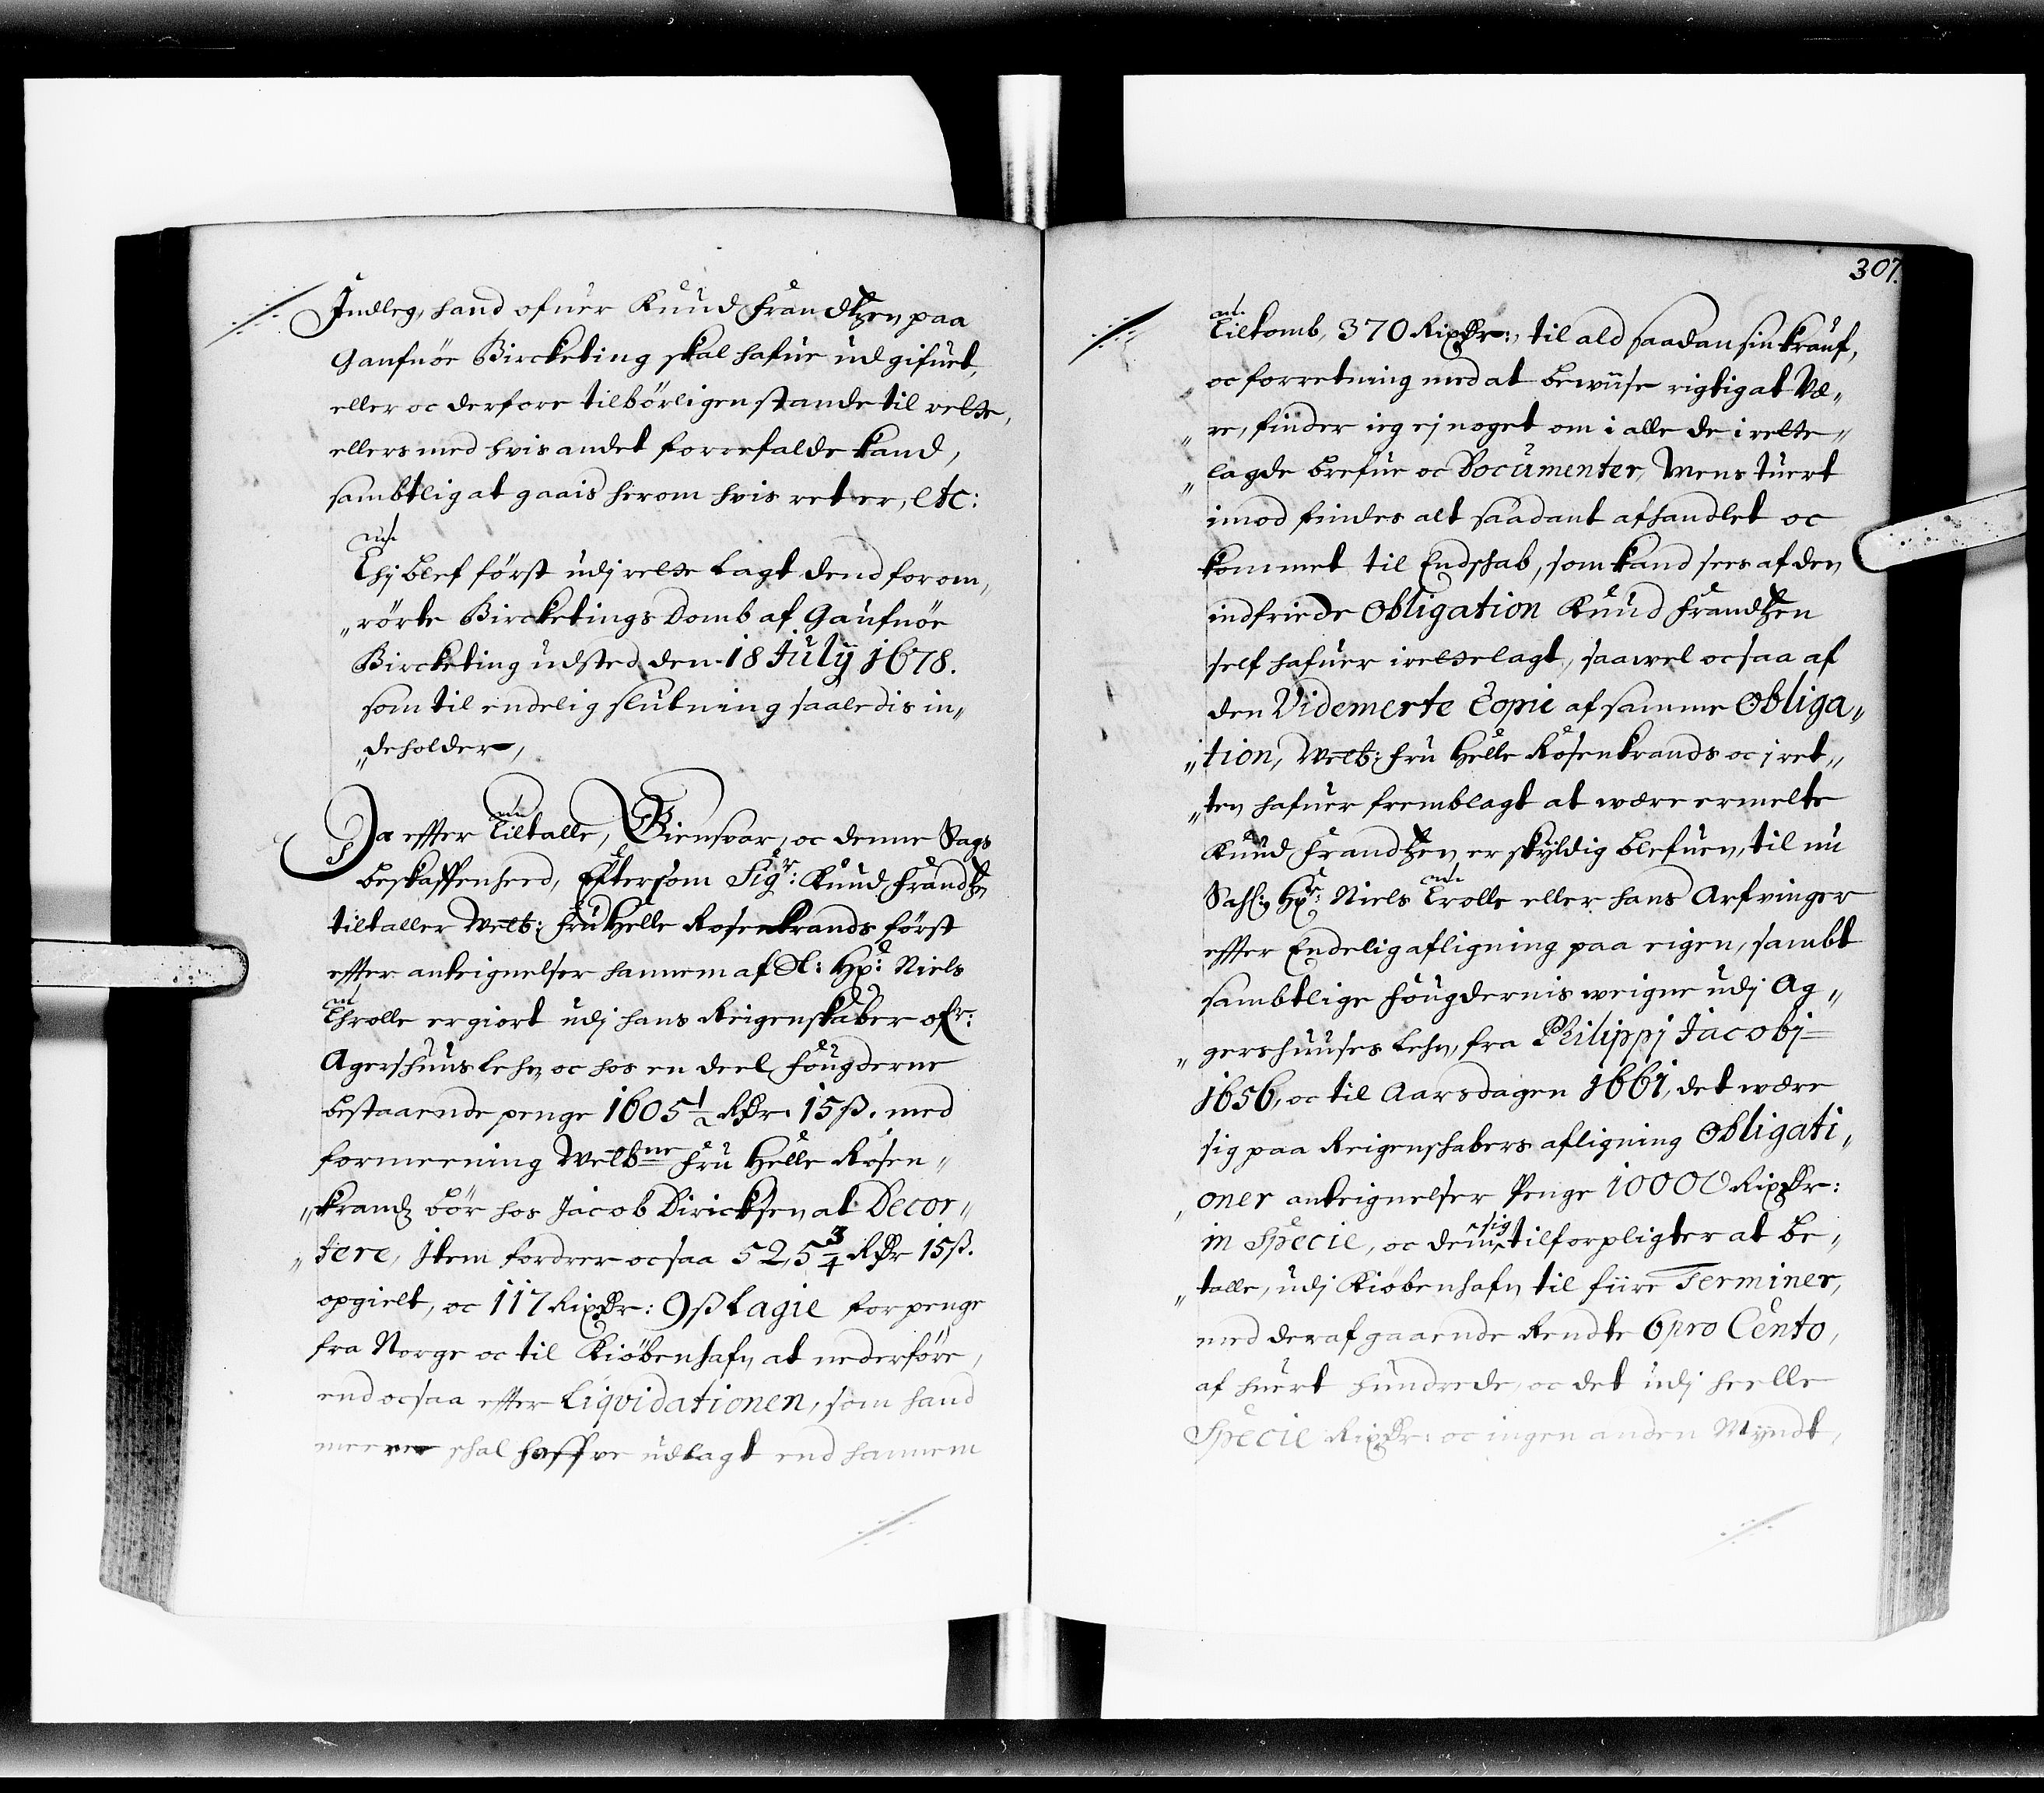 Indleg, hand ofuer Knud Frandtzen paa
Gaufnöe Bircketing skal hafue udgifuet,
eller oc derfore tilbörligen stande til rette,
ellers med hvis andet forrefalde kand,
sambtlig at gaais herom hvis ret er, etc:
Thj blef först udj rette lagt dend forom„
„rörte Bircketings Domb af Gaufnöe
Bircketing udsted den 18 Julij 1678.
som til endelig slutning saaledis in„
„deholder,
Da effter Tiltalle, Giensvar, oc denne Sags
beskaffenheed, Efftersom Sigr: Knud Frandtzen
tiltaller Welb: Fru Helle Rosenkrands först
effter anteignelser hannem af Sl: Hr: Niels
Throlle er giort udj hans Reigenskaber ofr:
Agershuus Lehn oc hos en deel Fougderne
bestaaende penge 1605 1/2 Rdr. 15 ß. med
formeening Welbne Fru Helle Rosen„
„krandz bör hos Jacob Dircksen at Decor„
„tere, Item fordrer ocsaa 525 3/4 Rdr 15 ß.
opgielt, oc 117 Rixdr: 9 ß Lagie for penge
fra Norge oc til Kiöbenhafn at nederföre,
end ocsaa effter Liqvidationen, som hand
meere skal haffve udlagt end hannem
307.
Tilkomb, 370 Rixdr:, til ald saadan sin krauf,
oc forretning med at bewiise rigtig at Væ„
„re, finder ieg ej noget om i alle de i rette„
„lagde brefue oc Documenter, Mens tuert
imod findes alt saadant afhandlet oc
kommet til Endskab, som kand sees af den
indfriede Obligation Knud Frandtzen
self hafuer i rettelagt, saawel ocsaa af
den Videmerte Copie af samme Obliga„
„tion, Welb: Fru Helle Rosenkrands oc j ret„
„ten hafuer fremblagt at være ermelte
Knud Frandtzen er skyldig blefuen, til nu
Sahl: Hr: Niels Trolle eller hans Arfvinger
effter Endelig afligning paa eigen, sambt
sambtlige Fougdernis weigne udj Ag„
„gershuuses Lehn, fra Philippj Jacobj
1656, oc til Aarsdagen 1661, det være
sig paa Reigenskabers afligning Obligati„
„oner anteignelser Penge 10000 Rixdr:
in Specie, oc dem sig tilforpligter at be„
„talle, udj Kiöbenhafn til fiire Terminer,
med der af gaaende Rendte 6 pro Cento,
af huert hundrede, oc det udj heelle
Specie Rixdr: oc ingen anden Myndt,